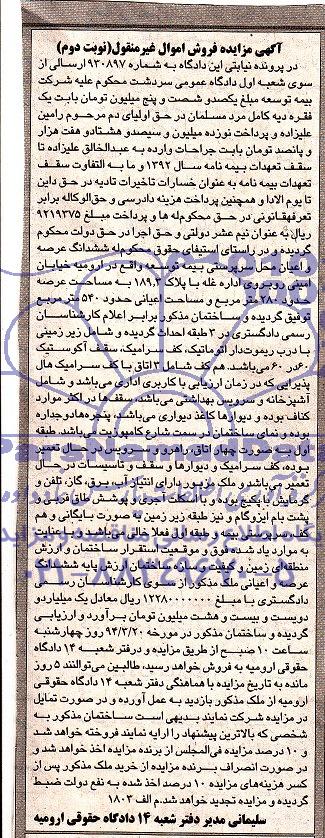 آگهی مزایده فروش اموال غیرمنقول(نوبت دوم)
در پرونده نیابتی این دادگاه به شماره ۹۳۰۸۹۷ ارسالی از
سوی شعبه اول دادگاه عمومی سردشت محکوم علیه شرکت
بیمه توسعه مبلغ یکصدو شصت و پنج میلیون تومان بابت یک
فقره دیه کامل مرد مسلمان در حق اولیای دم مرحوم رامین
علیزاده و پرداخت نوزده میلیون و سیصدو هشتادو هفت هزار
و پانصد تومان بابت جراحات وارده به عبدالخالق علیزاده تا
سقف تعهدات بیمه نامه سال ۱۳۹۲ و ما به التفاوت سقف
تعهدات بیمه نامه به عنوان خسارات تاخیرات تادیه در حق داین
تا یوم الادا و همچنین پرداخت هزینه دادرسی و حق‌الوکاله برابر
تعرفه‌قانونی در حق محکوم‌له ها و پرداخت مبلغ ۹۲۱۹۳۷۵
ریال به عنوان نیم عشر دولتی و حق اجرا در حق دولت محکوم
گردیده و در راستای استیفای حقوق محکوم‌له ششدانگ عرصه
و اعیان محل سرپرستی بیمه توسعه واقع در ارومیه خیابان
امینی روبروی اداره غله با پلاک ۱۸۹٫۲ به مساحت عرصه
حدود ۲۸۰ متر مربع و مساحت اعیانی حدود ۵۴۰ متر مربع
توقیف گردیده و ساختمان مذکور برابر اعلام کارشناسان
رسمی دادگستری در ۳ طبقه احداث گردیده و شامل زیر زمینی
با درب ریموت‌دار اتوماتیک، کف سرامیک، سقف آکوستیک
۶۰در ۶۰ می‌باشد. هم کف شامل ۳ اتاق با کف سرامیک هال
پذیرایی که در زمان ارزیابی با کاربری اداری می‌باشد و شامل
آشپزخانه و سرویس بهداشتی می‌باشد، سقف‌ها در اکثر موارد
کناف بوده و دیوارها کاغذ دیواری می‌باشد، پنجره‌هادوجداره
بوده و نمای ساختمان در سمت شارع کامپوزیت می‌باشد. طبقه
اول به صورت چهار اتاق، راهرو و سرویس در حال تعمیر
بوده، کف سرامیک و دیوارها و سقف و تاسیسات در حال
تعمیر می‌باشد و ملک مزبور دارای امتیاز آب، برق، گاز، تلفن و
گرمایش با پکیج بوده و با اسکلت آجری و پوشش طاق ضربی و
پشت بام ایزوگام و نیز طبقه زیر زمین به صورت بایگانی و هم
کف سرپرستی بیمه و طبقه اول فعلا خالی می‌باشد لذا با عنایت
به موارد یاد شده فوق و موقعیت استقرار ساختمان و ارزش
منطقه‌ای زمین و کیفیت و سازه ساختمان ارزش پایه ششدانگ
عرصه و اعیانی ملک مذکور از سوی کارشناسان رسمی
دادگستری با مبلغ ۱۲۲۸۰۰۰۰۰۰۰ ریال معادل یک میلیاردو
دویست و بیست و هشت میلیون تومان برآورد و ارزیابی
گردیده و ساختمان مذکور در مورخه ۹۴/۳/۲۰ روز چهارشنبه
ساعت ۱۰ صبح از طریق مزایده و درفتر شعبه ۱۴ دادگاه
حقوقی ارومیه به فروش خواهد رسید، طالبین می‌توانند ۵ روز
مانده به تاریخ مزایده با هماهنگی دفتر شعبه ۱۴ دادگاه حقوقی
ارومیه از ملک مذکور بازدید به عمل آورده و در صورت تمایل
در مزایده شرکت نمایند بدیهی است ساختمان مذکور به
شخصی که بالاترین پیشنهاد را ارایه نمایند فروخته خواهد شد
و ۱۰ درصد مزایده فی‌المجلس از برنده مزایده اخذ خواهد شد و
در صورت انصراف برنده مزایده از خرید ملک مذکور پس از
کسر هزینه‌های مزایده ۱۰ درصد اخذ شده به نفع دولت ضبط
گردیده و مزایده تجدید خواهد شد.م الف ۱۸۰۳
سلیمانی مدیر دفتر شعبه ۱۴ دادگاه حقوقی ارومیه